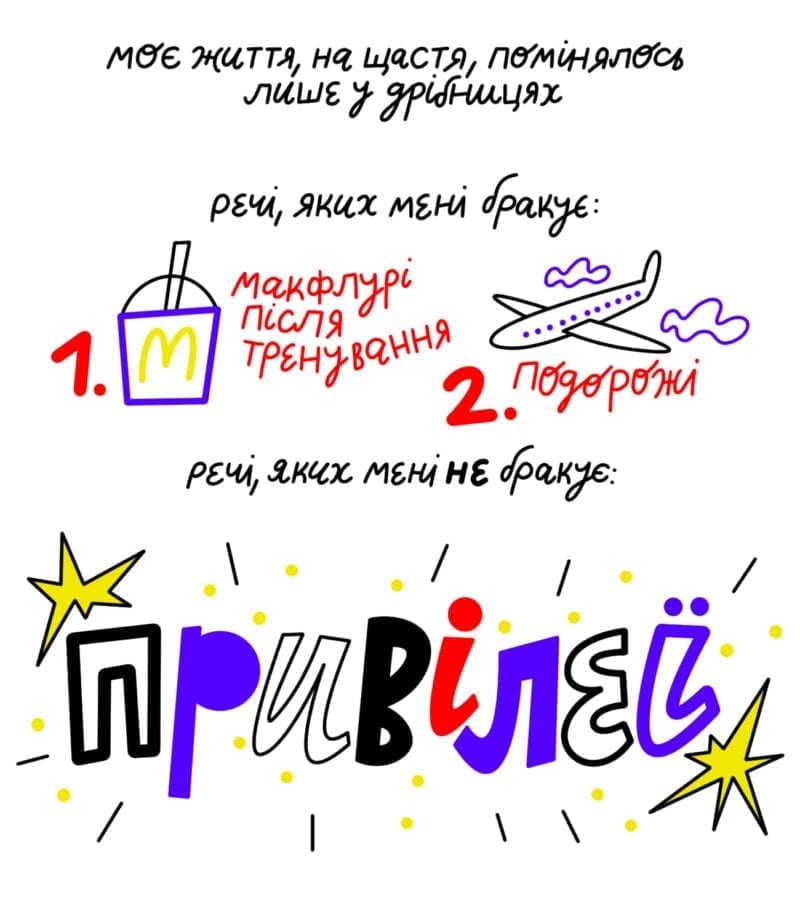 моє життя, на щастя, помінялось
лише у дрібницях
речі, яких мені бракує:
1.
M
макфлурі
після
тренування
2.
подорожі
речі, яких мені не бракує:
привілеї